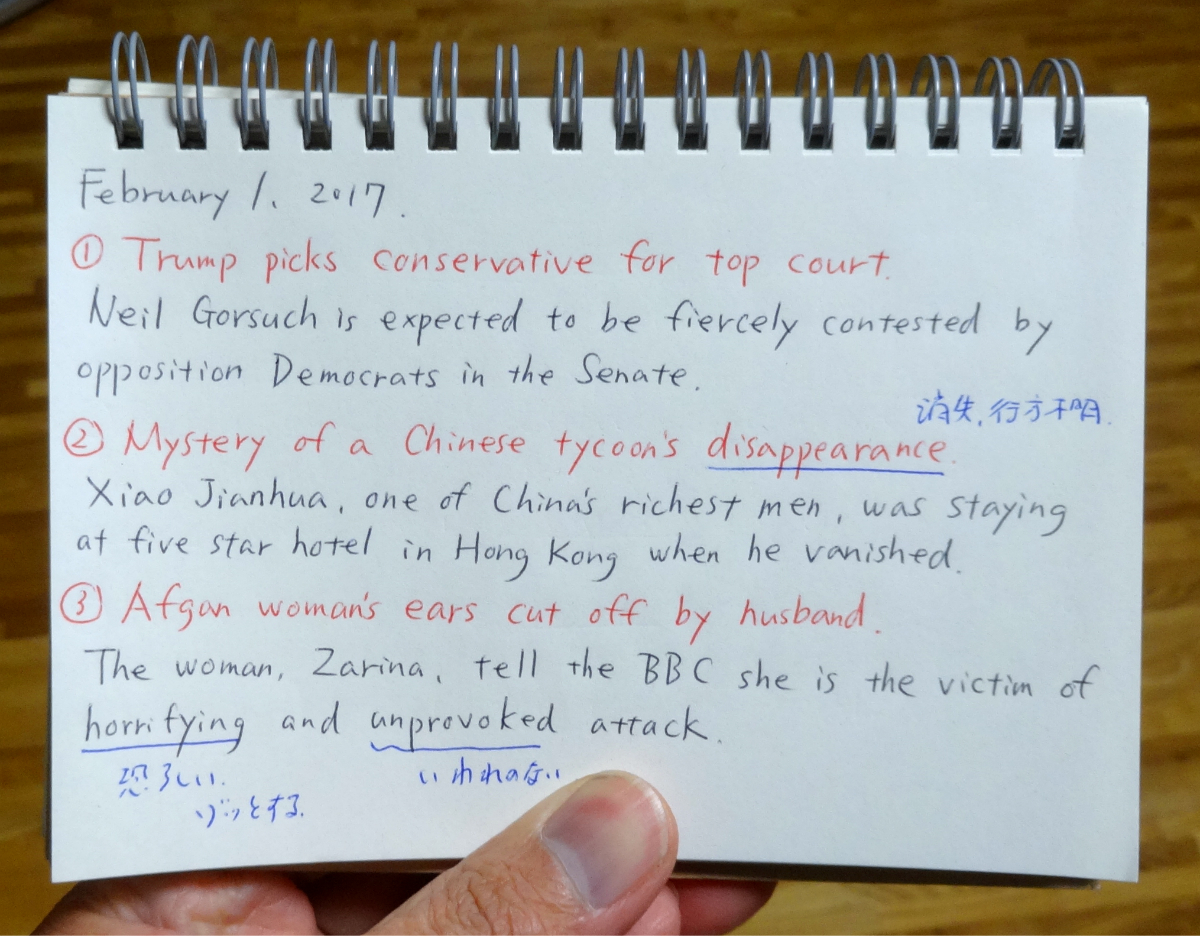 February 1. 2017.
① Trump picks conservative for top court.
Neil Gorsuch is expected to be fiercely contested by
opposition Democrats in the Senate.
消失, 行方不明.
② Mystery of a Chinese tycoon's disappearance.
Xiao Jianhua, one of China's richest men, was staying
at five star hotel in Hong Kong when he vanished.
③ Afgan woman's ears cut off by husband.
The woman, Zarina, tell the BBC she is the victim of
horrifying and unprovoked attack.
恐ろしい. いわれのない
ゾッとする.